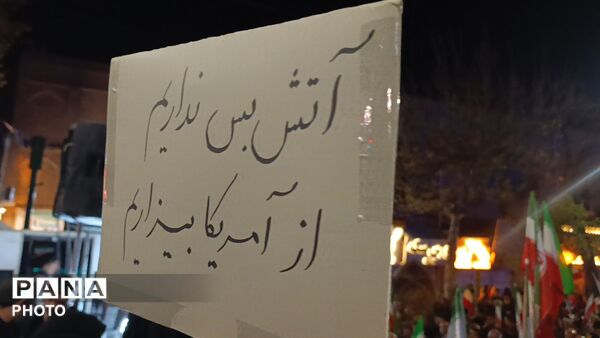 آتش بس نداریم
از آمریکا بیزاریم
PANA
PHOTO